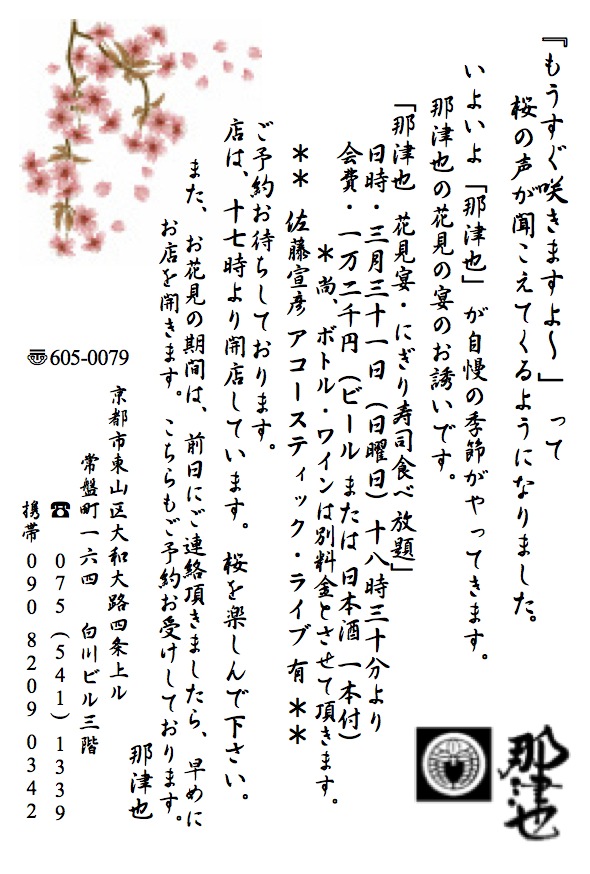 『もうすぐ咲きますよ〜」って
桜の声が聞こえてくるようになりました。
いよいよ「那津也」が自慢の季節がやってきます。
那津也の花見の宴のお誘いです。
「那津也 花見宴・にぎり寿司食べ放題」
日時・三月三十一日(日曜日)十八時三十分より
会費・一万二千円(ビールまたは日本酒一本付)
＊尚、ボトル・ワインは別料金とさせて頂きます。
＊＊ 佐藤宣彦 アコースティック・ライブ有 ＊＊
ご予約お待ちしております。
店は、十七時より開店しています。 桜を楽しんで下さい。
また、お花見の期間は、前日にご連絡頂きましたら、早めに
お店を開きます。こちらもご予約お受けしております。
那津也
〠605-0079
京都市東山区大和大路四条上ル
常盤町一六四 白川ビル三階
☎ 075(541)1339
携帯 090 8209 0342
那津也